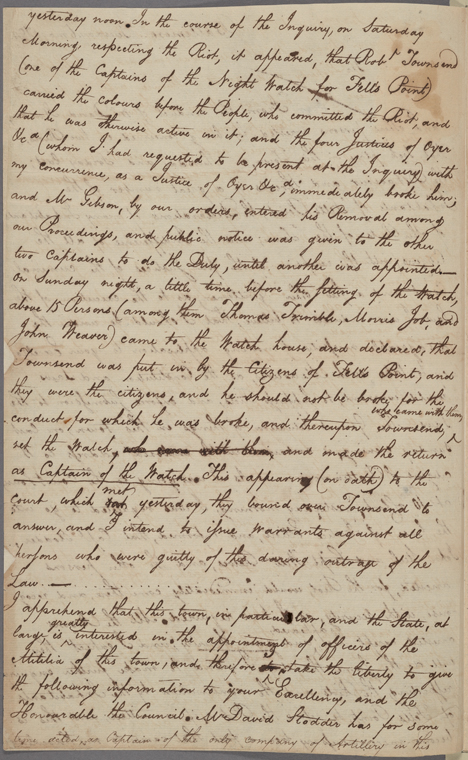 yesterday noon. In the course of the Inquiry, on Saturday
Morning, respecting the Riot, it appeared, that Robt. Townsend
(one of the Captains of the Night Watch for Fells Point)
carried the colours before the People, who committed the Riot, and
that he was otherwise active in it; and the four Justices of Oyer
&c (whom I had requested to be present at the Inquiry) with
my concurrence, as a Justice of Oyer &c, immediately broke him;
and Mr Gibson, by our orders, entered his Removal among
our Proceedings, and public notice was given to the other
two Captains to do the Duty, until another was appointed.—
On Sunday night, a little time before the setting of the Watch,
above 15 Persons (among them Thomas Trimble, Morris Job, and
John Weaver) came to the Watch house, and declared, that
Townsend was put in by the Citizens of Fells Point, and
they were the citizens, and he should not be broke for the
conduct for which he was broke, and thereupon Townsend, who came with them,
set the Watch, who came with them, and made the return
as Captain of the Watch. This appearing (on oath) to the
court, which met yesterday, they bound over Townsend to
answer, and I intend to issue Warrants against all
persons who were guilty of the daring outrage of the
Law.—
I apprehend that this town, in particular, and the State, at
large, is greatly interested in the appointment of officers of the
Militia of this town, and therefore take the liberty to give
the following information to your Excellency, and the
Honourable the Council. Mr David Stodder has for some
time acted as Captain of the only company of Artillery in this